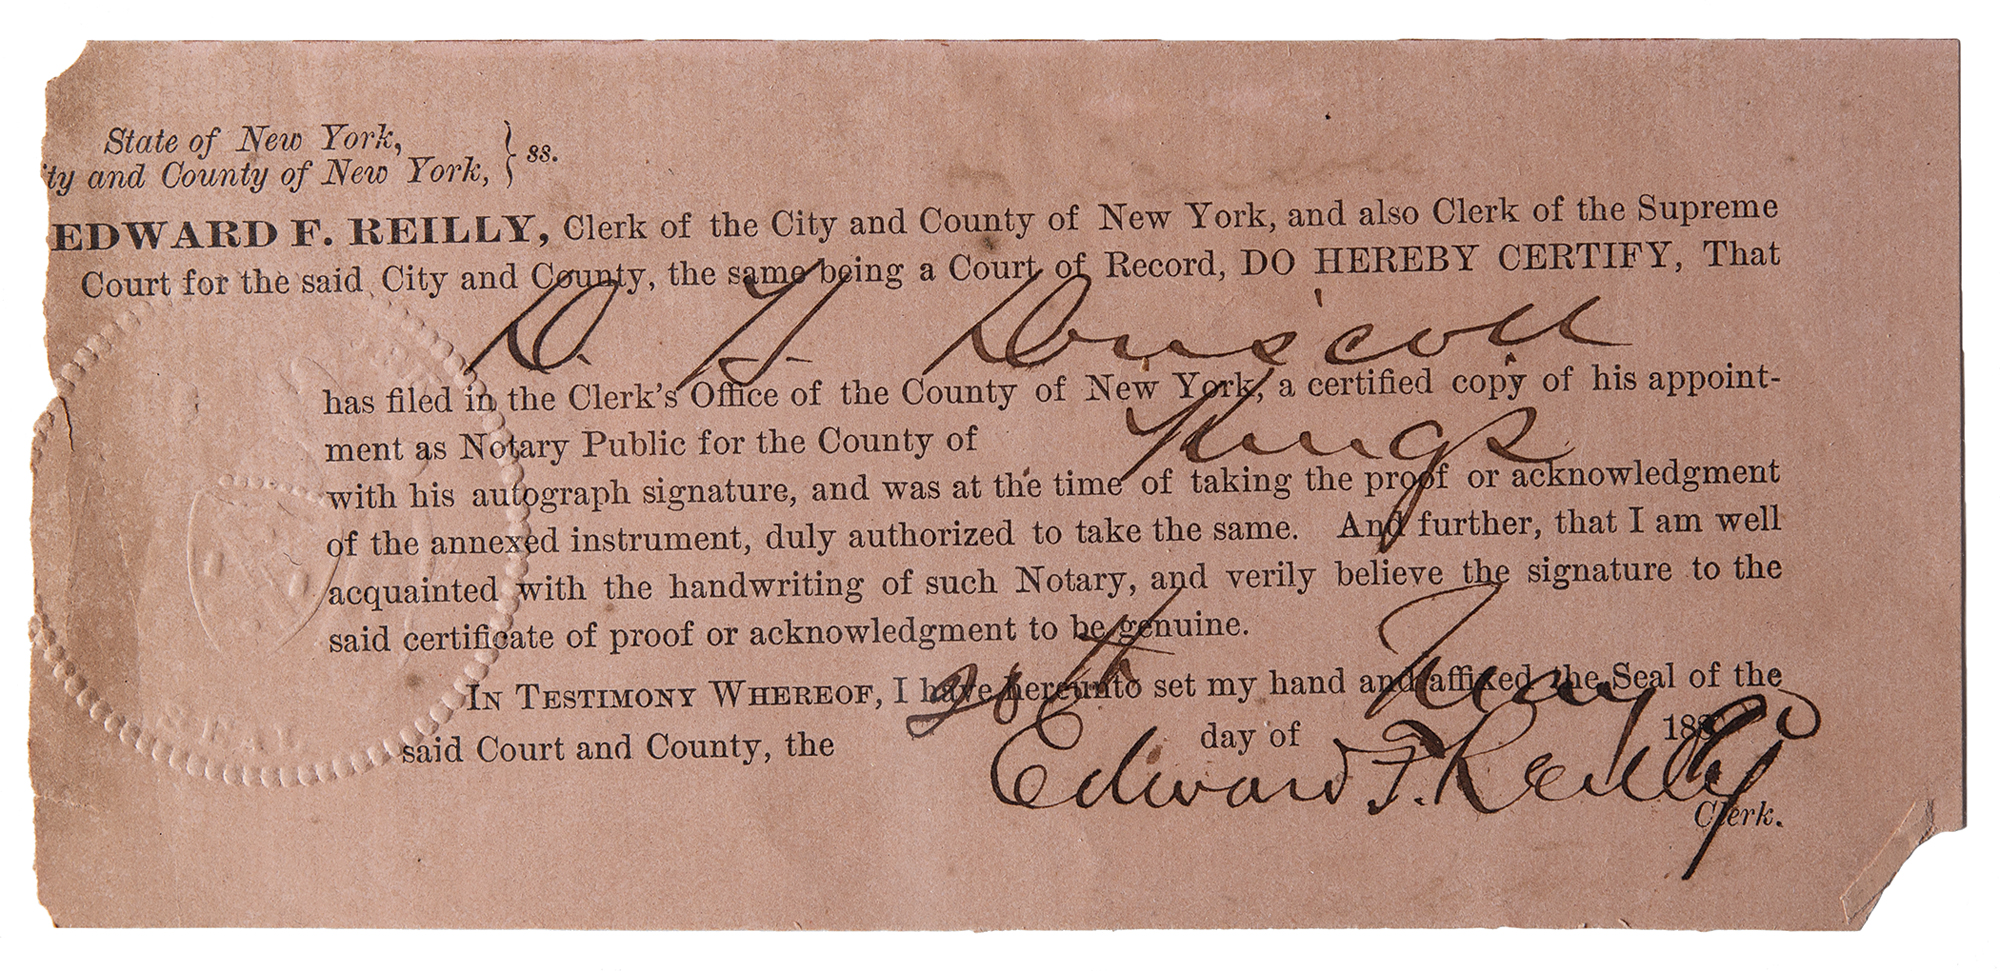 State of New York,
ty and County of New York, } ss.
EDWARD F. REILLY, Clerk of the City and County of New York, and also Clerk of the Supreme
Court for the said City and County, the same being a Court of Record, DO HEREBY CERTIFY, That
D. Driscoll
has filed in the Clerk's Office of the County of New York, a certified copy of his appoint-
ment as Notary Public for the County of Kings
with his autograph signature, and was at the time of taking the proof or acknowledgment
of the annexed instrument, duly authorized to take the same. And further, that I am well
acquainted with the handwriting of such Notary, and verily believe the signature to the
said certificate of proof or acknowledgment to be genuine.
IN TESTIMONY WHEREOF, I have hereunto set my hand and affixed the Seal of the
said Court and County, the day of 188
Edward F. Reilly
Clerk.
SEAL